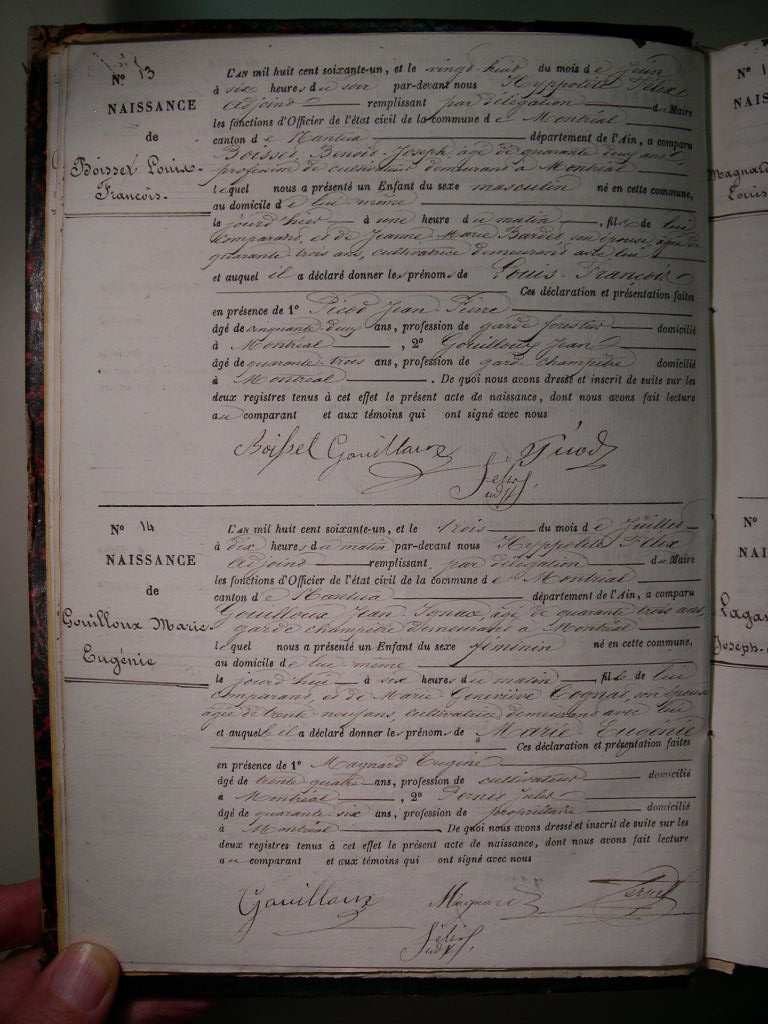 N° 13
NAISSANCE
de
Boisset Louis-
François.
L'AN mil huit cent soixante-un, et le vingt huit du mois de Juin
à six heures du soir par-devant nous Hyppolite Félix
adjoint remplissant par délégation du Maire
les fonctions d'Officier de l'état civil de la commune de Montréal
canton de Nantua département de l'Ain, a comparu
Boisset Benoit Joseph âgé de quarante deux ans
profession de cultivateur demeurant à Montréal
lequel nous a présenté un Enfant du sexe masculin né en cette commune,
au domicile de lui même
le jourd'hier à une heure du matin, fils de lui
comparant, et de Jeanne Marie Bardet son épouse, âgée de
quarante trois ans, cultivatrice demeurant avec lui
et auquel il a déclaré donner les prénoms de Louis-François
Ces déclaration et présentation faites
en présence de 1° Picod Jean Pierre
âgé de cinquante deux ans, profession de garde forestier domicilié
à Montréal, 2° Gouilloux Jean
âgé de quarante trois ans, profession de gard champêtre domicilié
à Montréal. De quoi nous avons dressé et inscrit de suite sur les
deux registres tenus à cet effet le présent acte de naissance, dont nous avons fait lecture
au comparant et aux témoins qui ont signé avec nous
Boisset Gouilloux Picod
Félix
adj.
N° 14
NAISSANCE
de
Gouilloux Marie-
Eugénie
L'AN mil huit cent soixante-un, et le trois du mois de Juillet
à dix heures du matin par-devant nous Hyppolite Félix
adjoint remplissant par délégation du Maire
les fonctions d'Officier de l'état civil de la commune de Montréal
canton de Nantua département de l'Ain, a comparu
Gouilloux Jean âgé de quarante trois ans,
garde champêtre demeurant à Montréal
lequel nous a présenté un Enfant du sexe féminin né en cette commune,
au domicile de lui même
le jourd'hui à six heures du matin, fille de lui
comparant, et de Marie Geneviève Cognat son épouse
âgée de trente neuf ans, cultivatrice demeurant avec lui
et auquel il a déclaré donner les prénoms de Marie Eugénie
Ces déclaration et présentation faites
en présence de 1° Maynard Eugène
âgé de trente quatre ans, profession de cultivateur domicilié
à Montréal, 2° Jules
âgé de quarante six ans, profession de propriétaire domicilié
à Montréal. De quoi nous avons dressé et inscrit de suite sur les
deux registres tenus à cet effet le présent acte de naissance, dont nous avons fait lecture
au comparant et aux témoins qui ont signé avec nous
Gouilloux
Félix
adj.